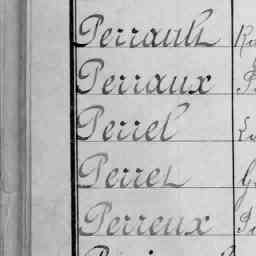 Perrault
Perraux
Perrel
Perret
Perreux